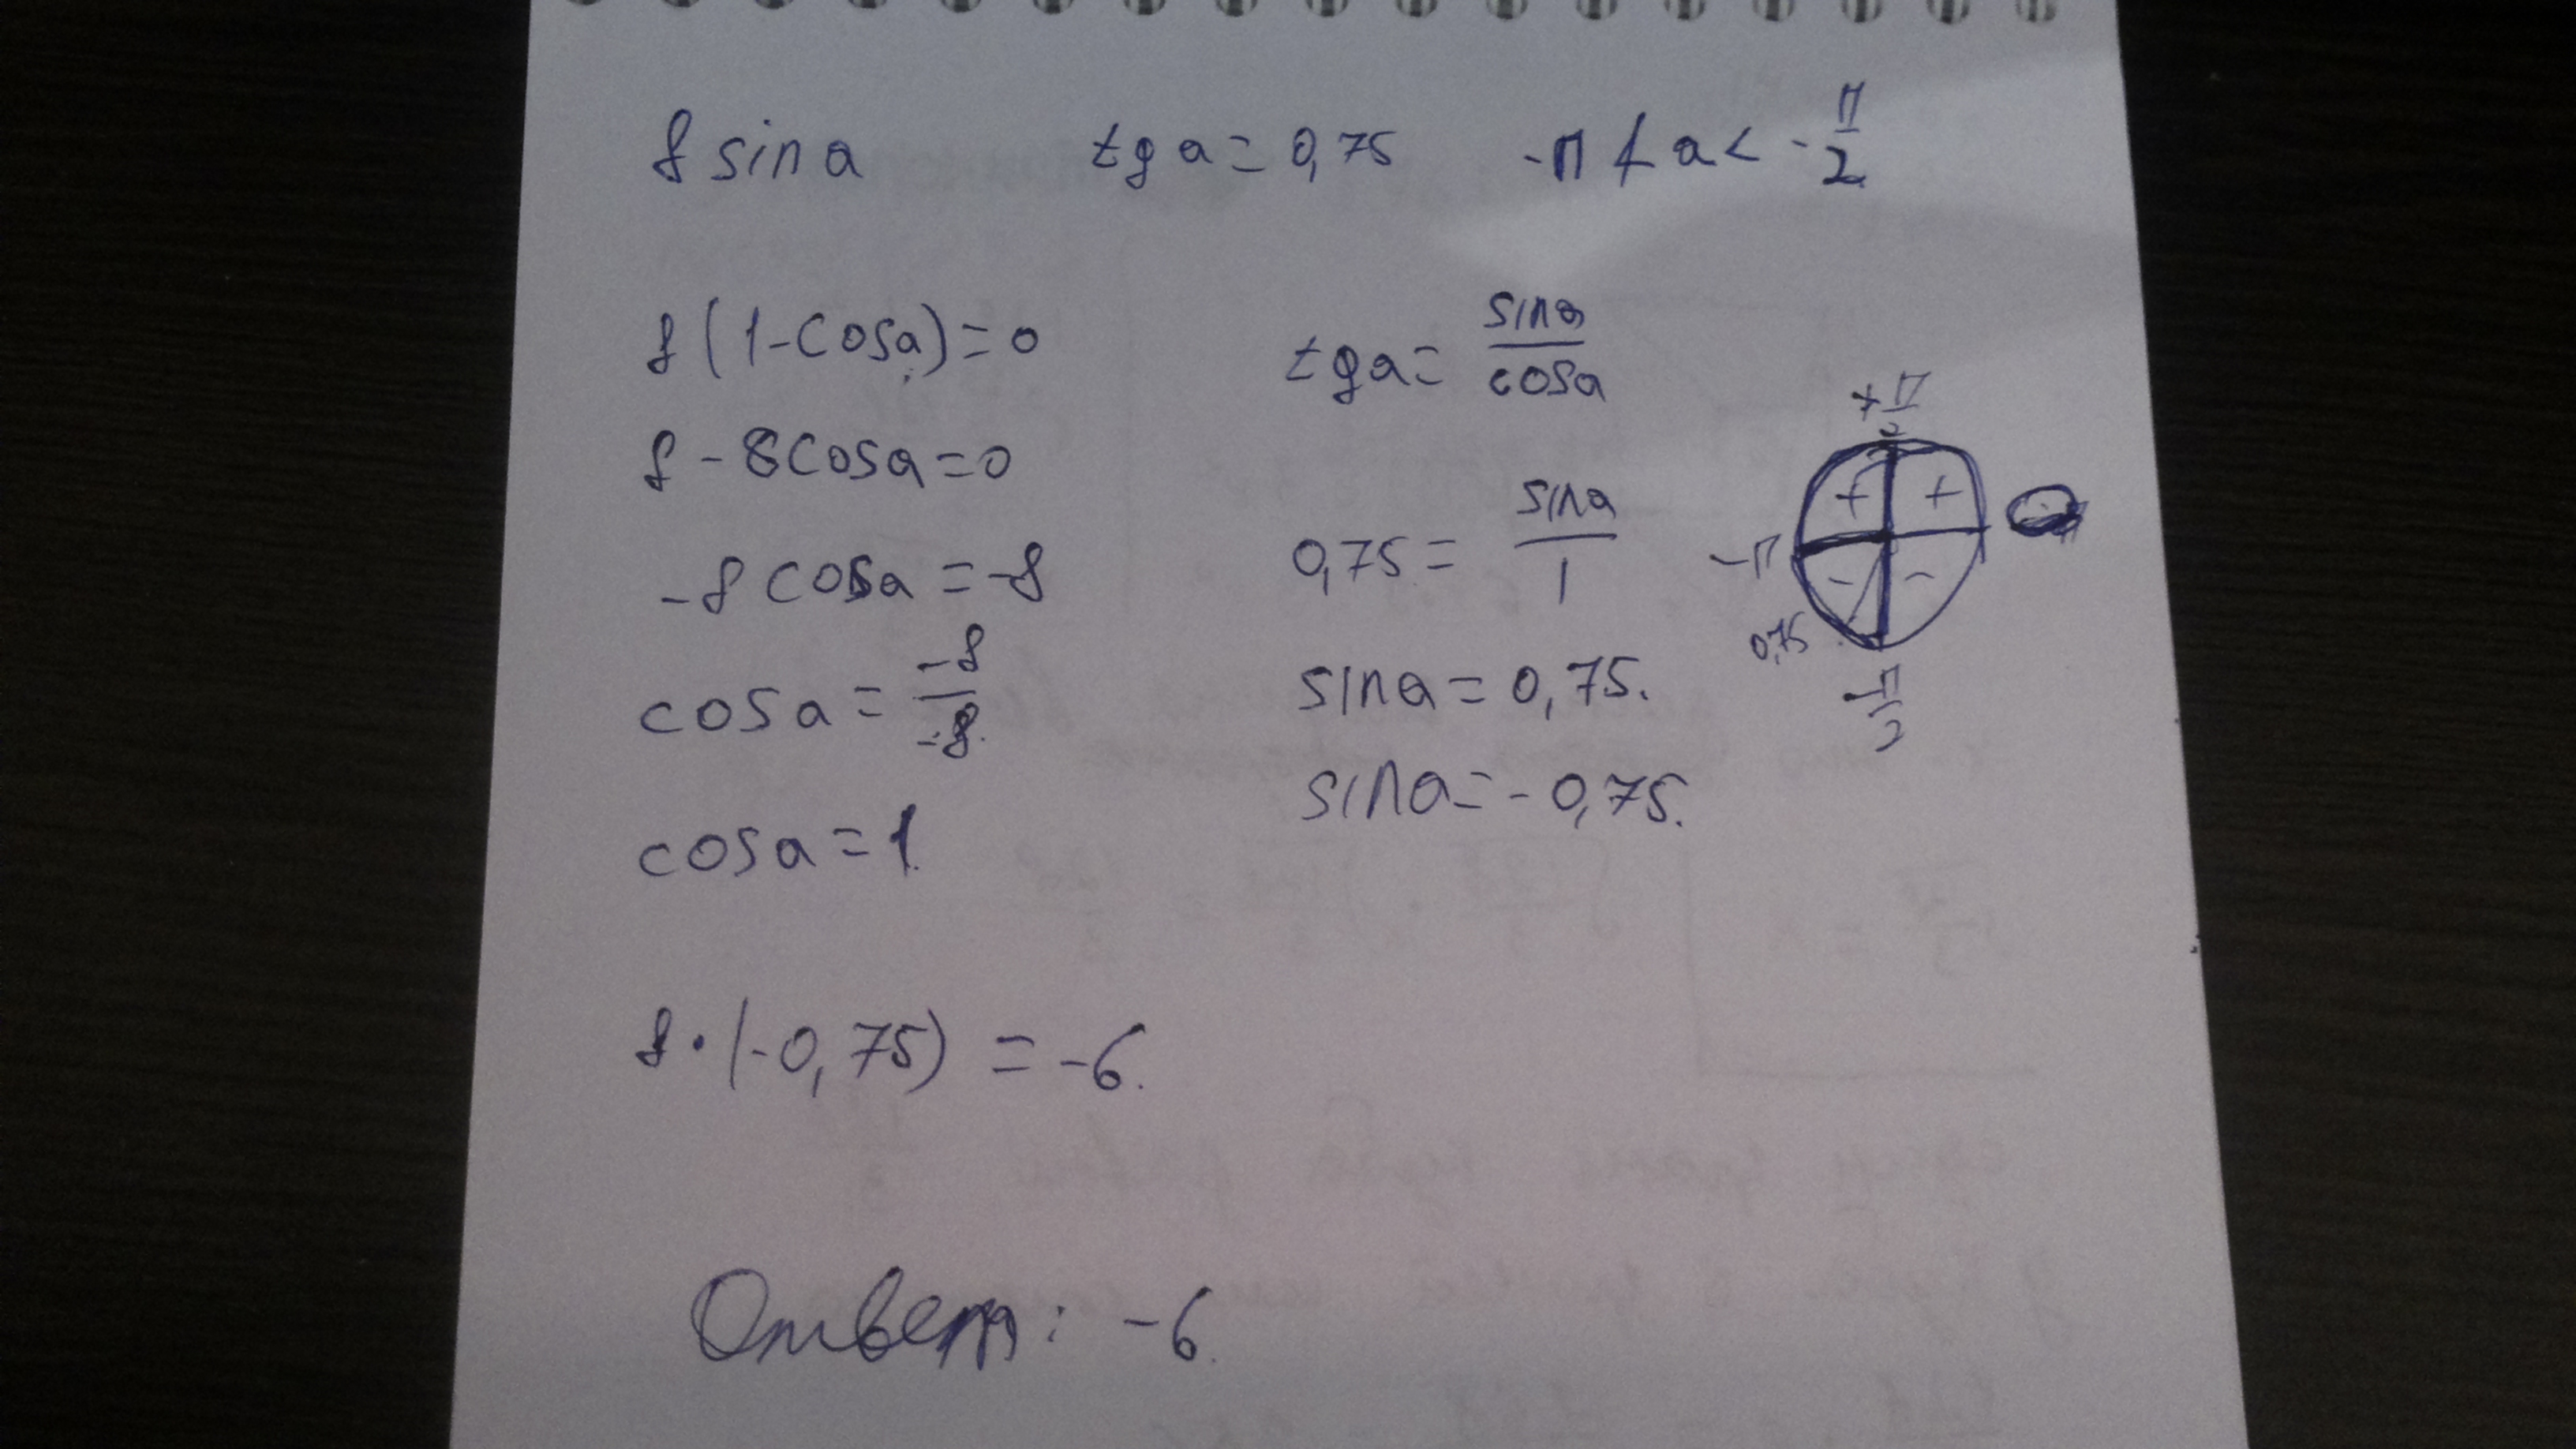 8 sin a   tg a = 0,75   -π < a < -π/2
8(1-cosa)=0
8-8cosa=0
-8cosa=-8
cosa = -8/-8
cosa=1.
tga = sina/cosa
0,75 = sina/1
sina=0,75.
sina=-0,75.
+π/2
+ +
-π
- -
0,75
-π/2
8·(-0,75) = -6.
Ответ: -6.